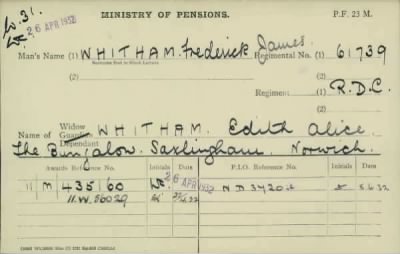 W. 31.
26 APR 1932
MINISTRY OF PENSIONS.
P.F. 23 M.
Man's Name (1) WHITHAM. Frederick James. Regimental No. (1) 61739
Surname first in Block Letters
(2) (2)
Regiment (1) R.D.C.
(2)
Name of Widow Guardian Dependant WHITHAM. Edith Alice
The Bungalow. Saxlingham. Norwich.
Awards Reference No. Initials Date P.I.O. Reference No. Initials Date
11 M 435160 26 APR 1932 5.4.32
11. W. 56029